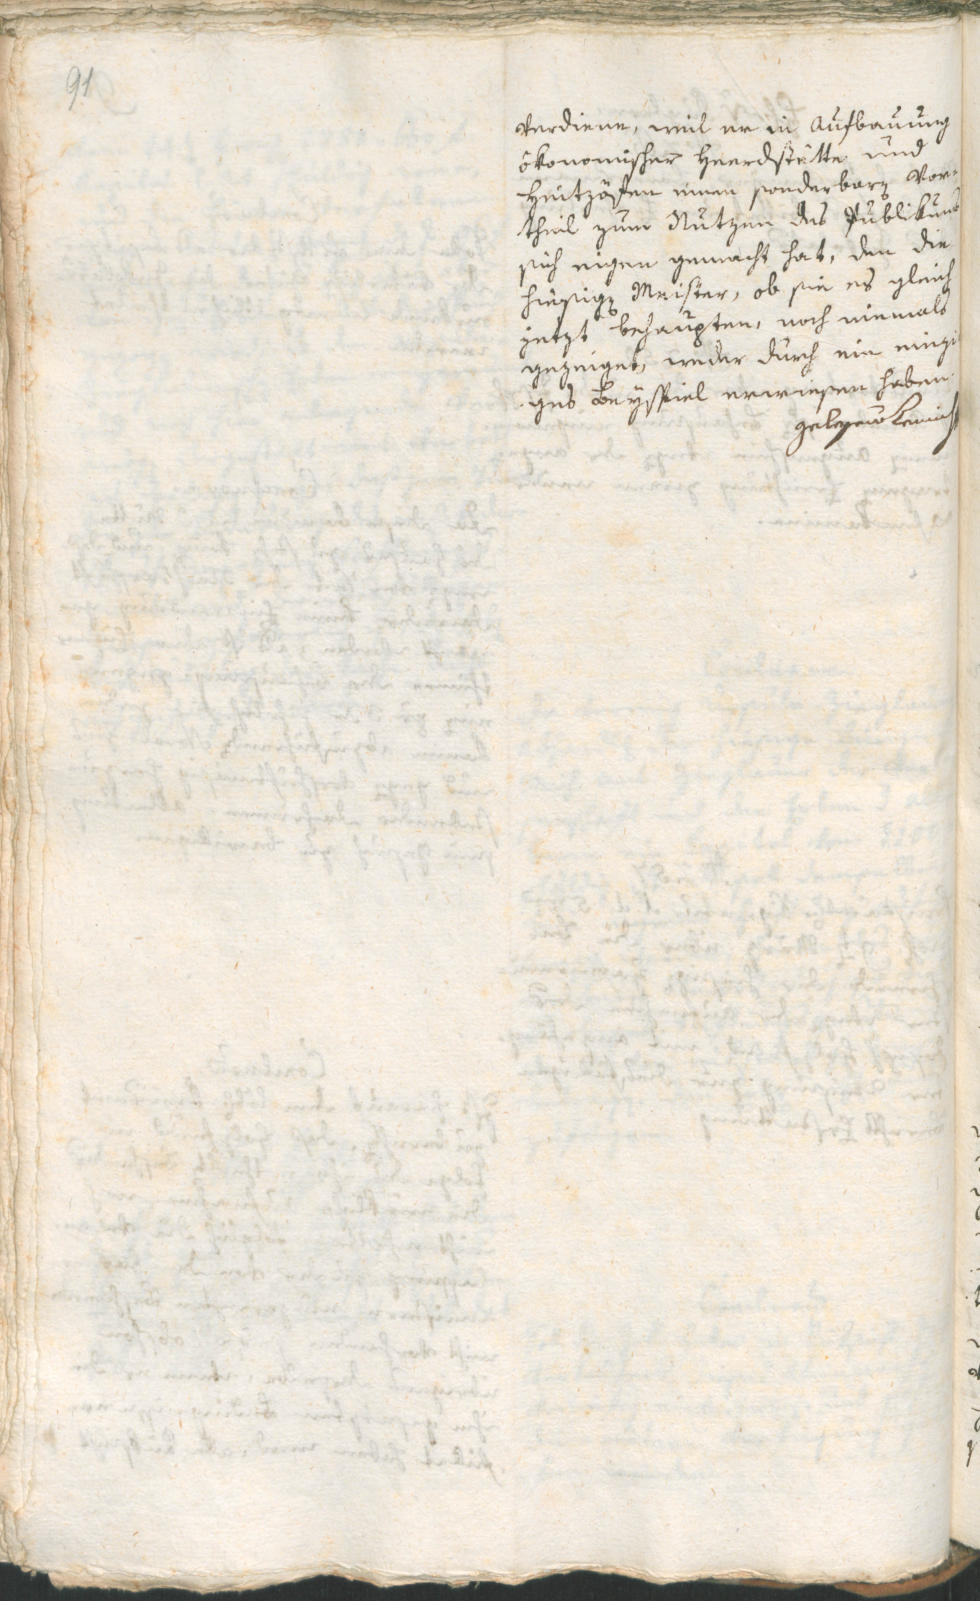 91
verdiene, weil er in Aufbauung
ökonomischer Heerdstätte und
Heitzöfen einen sonderbarn Vor-
theil zum Nutzen des Publikums
sich eigen gemacht hat, den die
hiesigen Meister, ob sie es gleich
jetzt behaupten, noch niemals
gezeiget, weder durch ein einzi
ges Beyspiel erwiesen haben